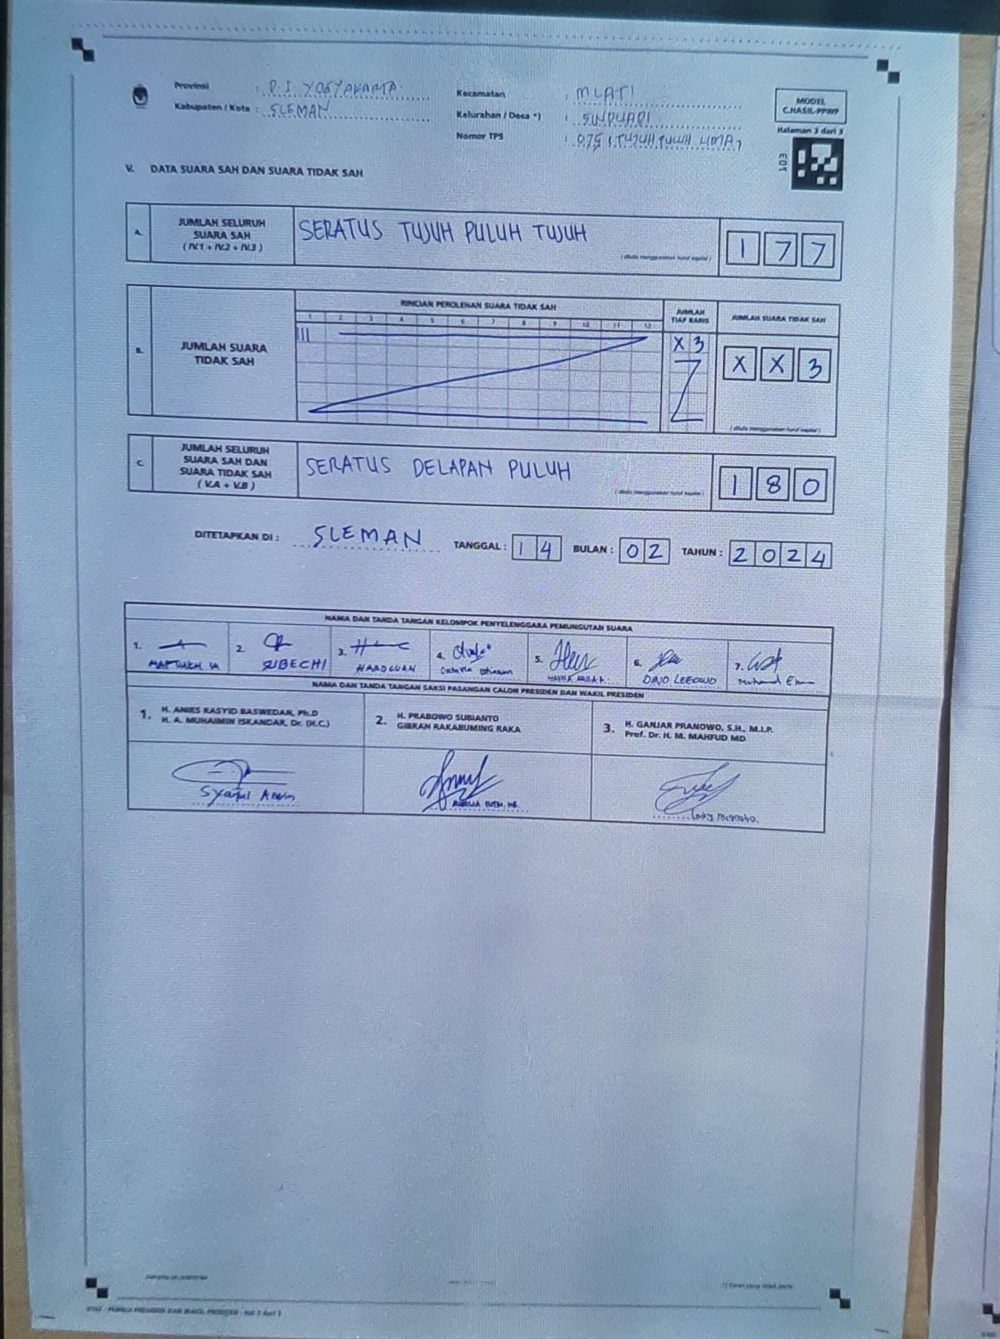 Provinsi : D.I. YOGYAKARTA
Kabupaten / Kota : SLEMAN
Kecamatan : MLATI
Kelurahan / Desa *) : SINDUADI
Nomor TPS : 075 (TUJUH PULUH LIMA)
MODEL
C.HASIL-PPWP
Halaman 3 dari 3
V. DATA SUARA SAH DAN SUARA TIDAK SAH
A. JUMLAH SELURUH
SUARA SAH
( IV.1 + IV.2 + IV.3 )
SERATUS TUJUH PULUH TUJUH
( ditulis menggunakan huruf kapital )
1 7 7
B. JUMLAH SUARA
TIDAK SAH
RINCIAN PEROLEHAN SUARA TIDAK SAH
1 2 3 4 5 6 7 8 9 10 11 12
JUMLAH
TIAP BARIS
X 3
JUMLAH SUARA TIDAK SAH
X X 3
( ditulis menggunakan huruf kapital )
C. JUMLAH SELURUH
SUARA SAH DAN
SUARA TIDAK SAH
( V.A + V.B )
SERATUS DELAPAN PULUH
( ditulis menggunakan huruf kapital )
1 8 0
DITETAPKAN DI : SLEMAN TANGGAL : 14 BULAN : 02 TAHUN : 2024
NAMA DAN TANDA TANGAN KELOMPOK PENYELENGGARA PEMUNGUTAN SUARA
1.
2. SUBECHI
3.
4.
5.
6.
7.
NAMA DAN TANDA TANGAN SAKSI PASANGAN CALON PRESIDEN DAN WAKIL PRESIDEN
1. H. ANIES RASYID BASWEDAN, Ph.D
H. A. MUHAIMIN ISKANDAR, Dr. (H.C.)
2. H. PRABOWO SUBIANTO
GIBRAN RAKABUMING RAKA
3. H. GANJAR PRANOWO, S.H., M.I.P.
Prof. Dr. H. M. MAHFUD MD